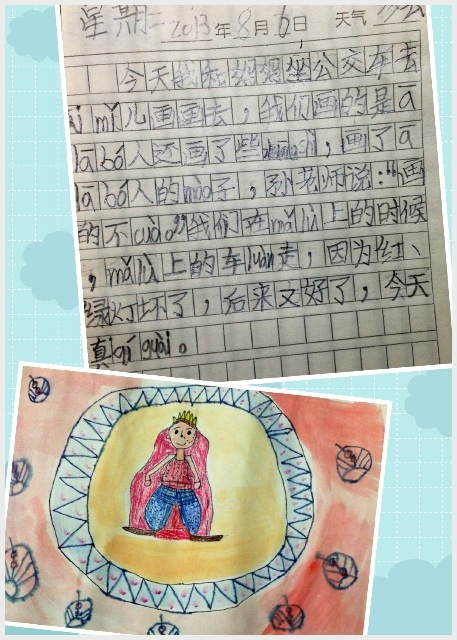 星期二 2013年8月6日 天气
今天我和妈妈坐公交车去
mǐ儿画画去，我们画的是ā
lā bó人还画了些，画了ā
lā bó人的mào子，孙老师说：“画
的不cuò。”我们在mǎ lù上的时候
，mǎ lù上的车luàn走，因为红、
绿灯坏了，后来又好了，今天
真qí guài。